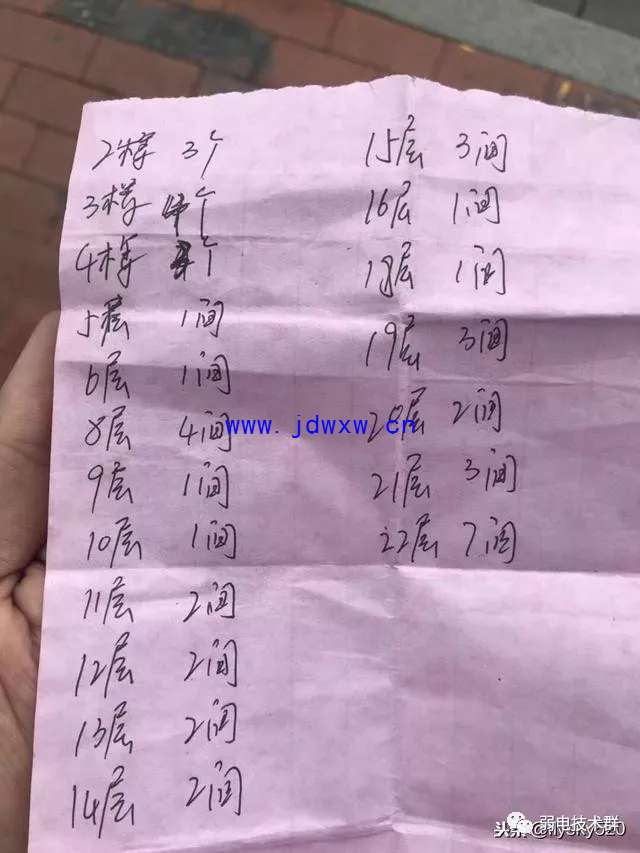 2楼 3个
3楼 个
4楼 个
5层 1间
6层 1间
8层 4间
9层 1间
10层 1间
11层 2间
12层 2间
13层 2间
14层 2间
15层 3间
16层 1间
18层 1间
19层 3间
20层 2间
21层 3间
22层 7间
www.jdwxw.cn
弱电技术群
头条